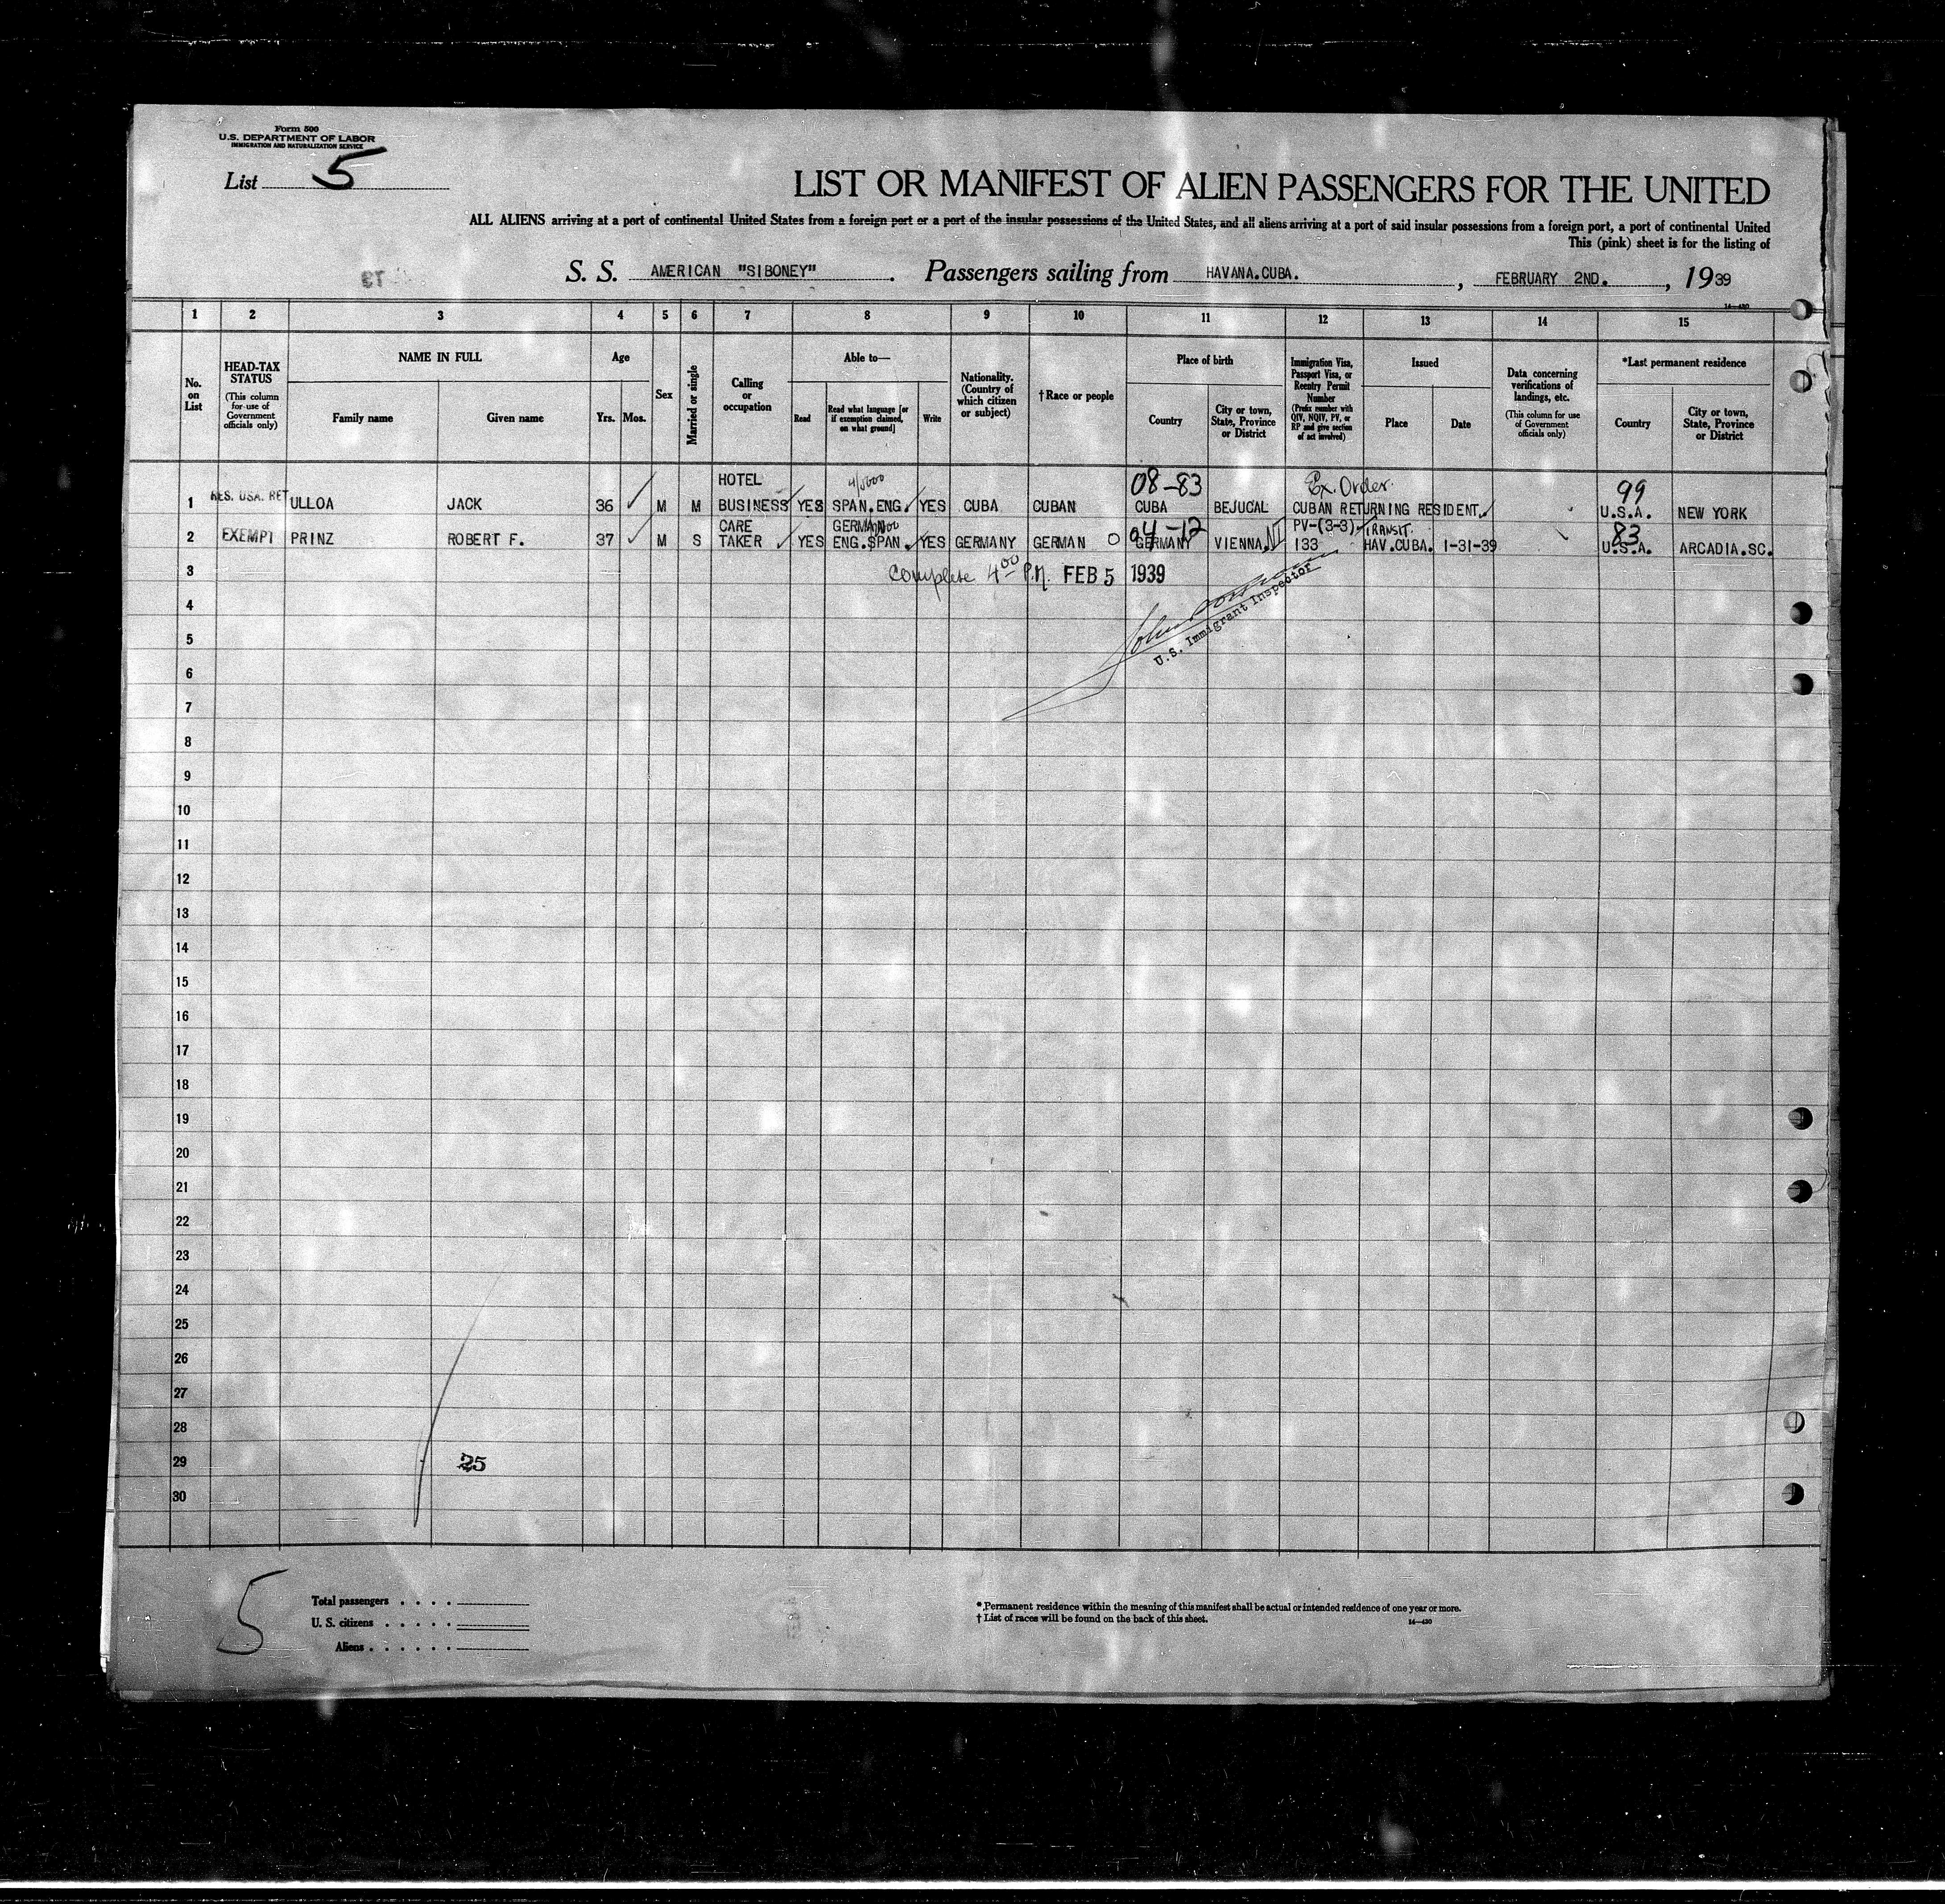 Form 500
U.S. DEPARTMENT OF LABOR
IMMIGRATION AND NATURALIZATION SERVICE
List 5
LIST OR MANIFEST OF ALIEN PASSENGERS FOR THE UNITED
ALL ALIENS arriving at a port of continental United States from a foreign port or a port of the insular possessions of the United States, and all aliens arriving at a port of said insular possessions from a foreign port, a port of continental United
This (pink) sheet is for the listing of
S. S. AMERICAN "SIBONEY" . Passengers sailing from HAVANA.CUBA. , FEBRUARY 2ND. , 1939
14—430
1 2 3 4 5 6 7 8 9 10 11 12 13 14 15
No. on List
HEAD-TAX STATUS
(This column for use of Government officials only)
NAME IN FULL
Family name
Given name
Age
Yrs.
Mos.
Sex
Married or single
Calling or occupation
Able to—
Read
Read what language [or if exemption claimed, on what ground]
Write
Nationality. (Country of which citizen or subject)
† Race or people
Place of birth
Country
City or town, State, Province or District
Immigration Visa, Passport Visa, or Reentry Permit Number
(Prefix number with QIV, NQIV, PV, or RP and give section of act involved)
Issued
Place
Date
Data concerning verifications of landings, etc.
(This column for use of Government officials only)
*Last permanent residence
Country
City or town, State, Province or District
HOTEL 08-83 Ex. Order. 99
1 RES. USA. RET ULLOA JACK 36 M M BUSINESS YES SPAN.ENG. YES CUBA CUBAN CUBA BEJUCAL CUBAN RETURNING RESIDENT. U.S.A. NEW YORK
CARE GERMAN 04-12 PV-(3-3) TRANSIT. 83
2 EXEMPT PRINZ ROBERT F. 37 M S TAKER YES ENG.SPAN. YES GERMANY GERMAN O GERMANY VIENNA. 133 HAV.CUBA. 1-31-39 U.S.A. ARCADIA.SC.
3 Complete 4 00 P.M. FEB 5 1939
4
John
U.S. Immigrant Inspector
5
6
7
8
9
10
11
12
13
14
15
16
17
18
19
20
21
22
23
24
25
26
27
28
29 25
30
5
Total passengers
U. S. citizens
Aliens
* Permanent residence within the meaning of this manifest shall be actual or intended residence of one year or more.
† List of races will be found on the back of this sheet.
14—430